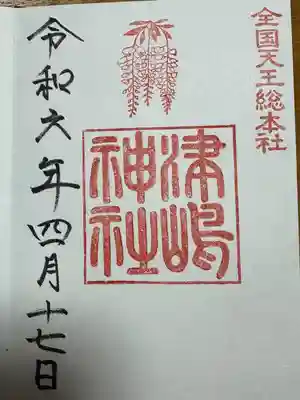 全国天王総本社
津嶋
神社
令和六年四月十七日